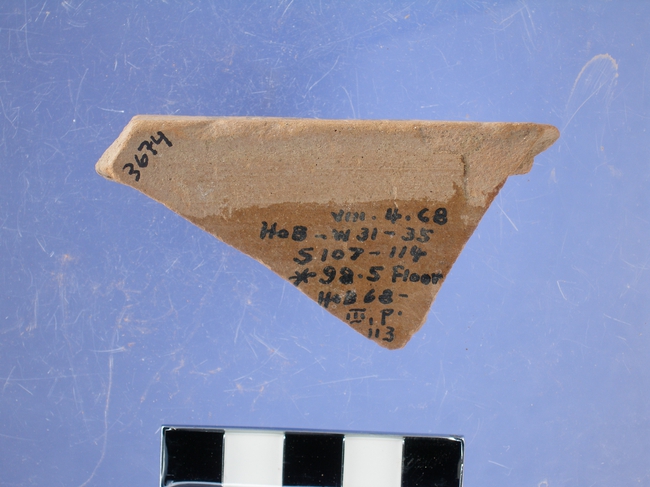 3674
VIII.4.68
HoB-W31-35
S107-114
*98.5 Floor
HoB68-
III,P.
113